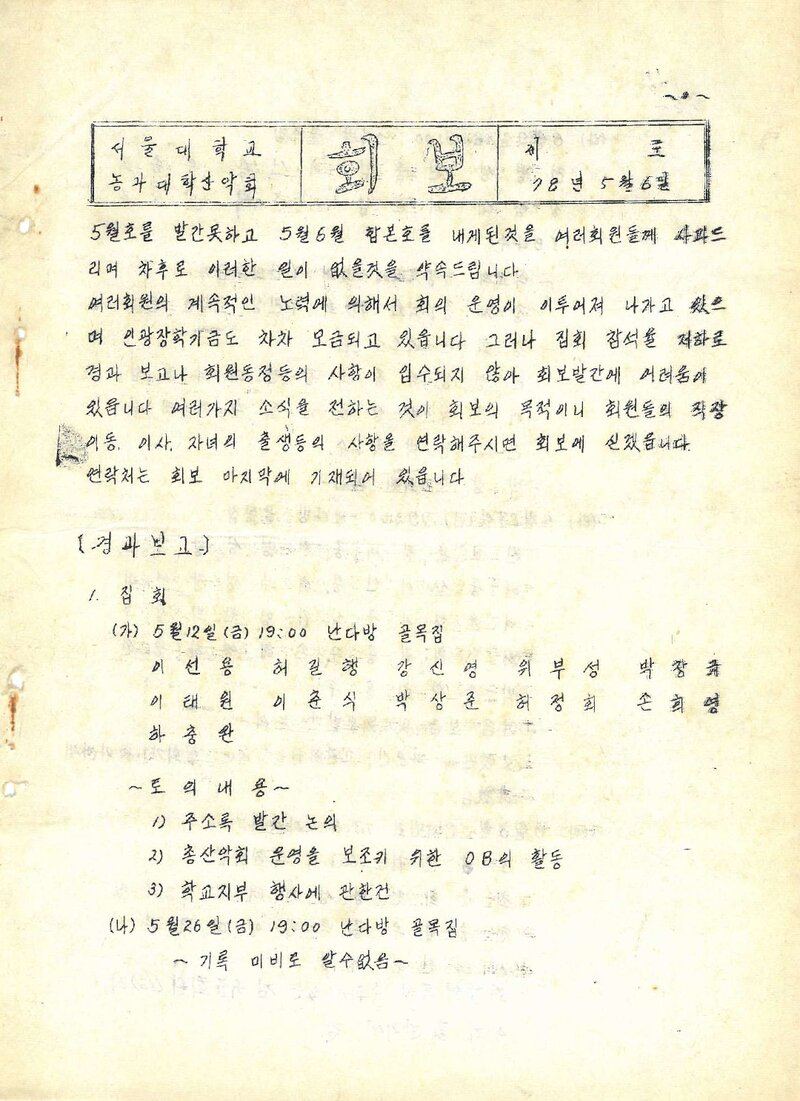 서울대학교
농과대학산악회
회보
제 호
78년 5월6월
5월호를 발간못하고 5월6월 합본호를 내게된것을 여러회원들께 사과드
리며 차후로 이러한 일이 없을것을 약속드립니다
여러회원의 계속적인 노력에 의해서 회의 운영이 이루어져 나가고 있으
며 인광장학기금도 차차 모금되고 있읍니다 그러나 집회 참석율 저하로
경과 보고나 회원동정등의 사항이 입수되지 않아 회보발간에 어려움이
있읍니다 여러가지 소식을 전하는 것이 회보의 목적이니 회원들의 직장
이동, 이사, 자녀의 출생등의 사항을 연락해주시면 회보에 싣겠읍니다.
연락처는 회보 마지막에 기재되어 있읍니다
[경과보고]
1. 집회
(가) 5월12일(금) 19:00 난다방 골목집
이선용 허길행 강신영 위부성 박창규
이태원 이춘식 박상준 허정회 손희영
하충완
~토의내용~
1) 주소록 발간 논의
2) 총산악회 운영을 보조키 위한 OB의 활동
3) 학교지부 행사에 관한건
(나) 5월26일(금) 19:00 난다방 골목집
~기록 미비로 알수없음~